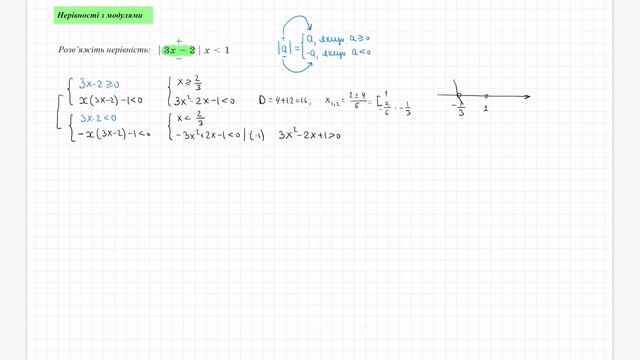 Нерівності з модулями
Розв'яжіть нерівність: | 3x − 2 | x < 1
|a| = { a, якщо a ≥ 0
-a, якщо a < 0
3x-2 ≥ 0
x(3x-2)-1<0
3x-2 < 0
-x(3x-2)-1<0
x ≥ 2/3
3x²-2x-1<0
x < 2/3
-3x²+2x-1<0 |·(-1) 3x²-2x+1>0
D = 4+12=16; x₁,₂ = (2±4)/6 = [ 1
-2/6 = -1/3
-1/3 1